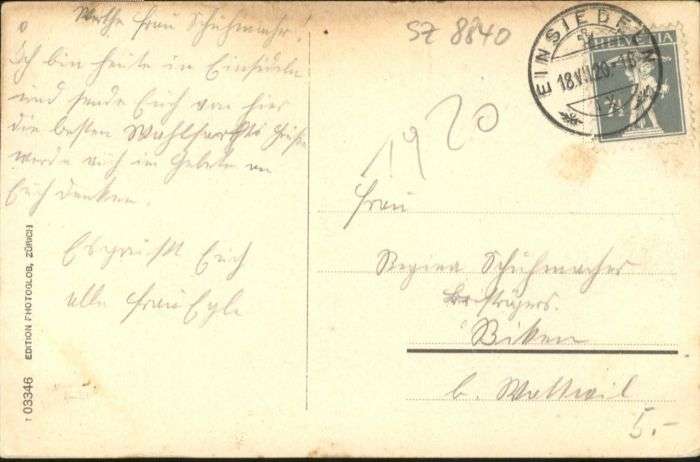 Werthe Frau Schuhmacher!
Ich bin heute in Einsideln
und sende Euch von hier
die besten Wahlfarts Grüße
werde auch im Gebete an
Euch denken.
Es grüßt Euch
alle Frau Egle
SZ 8840
EINSIEDELN
18.VII.20
HELVETIA
1920
Frau
Regina Schuhmacher
Briefträgers.
Biken
b. Wattwil
5.-
EDITION PHOTOGLOB, ZÜRICH
03346